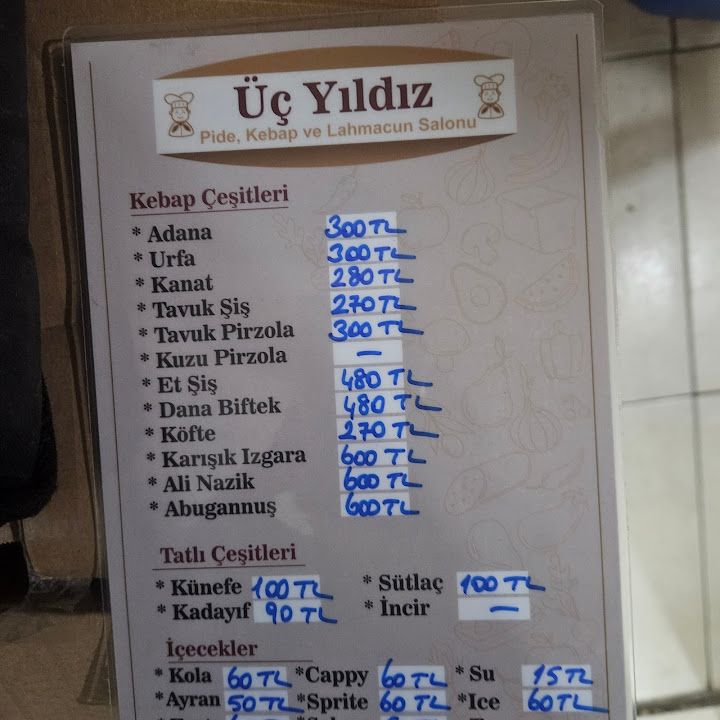 Üç Yıldız
Pide, Kebap ve Lahmacun Salonu
Kebap Çeşitleri
* Adana 300 TL
* Urfa 300 TL
* Kanat 280 TL
* Tavuk Şiş 270 TL
* Tavuk Pirzola 300 TL
* Kuzu Pirzola —
* Et Şiş 480 TL
* Dana Biftek 480 TL
* Köfte 270 TL
* Karışık Izgara 600 TL
* Ali Nazik 600 TL
* Abugannuş 600 TL
Tatlı Çeşitleri
* Künefe 100 TL * Sütlaç 100 TL
* Kadayıf 90 TL * İncir —
İçecekler
* Kola 60 TL *Cappy 60 TL * Su 15 TL
*Ayran 50 TL *Sprite 60 TL *Ice 60 TL